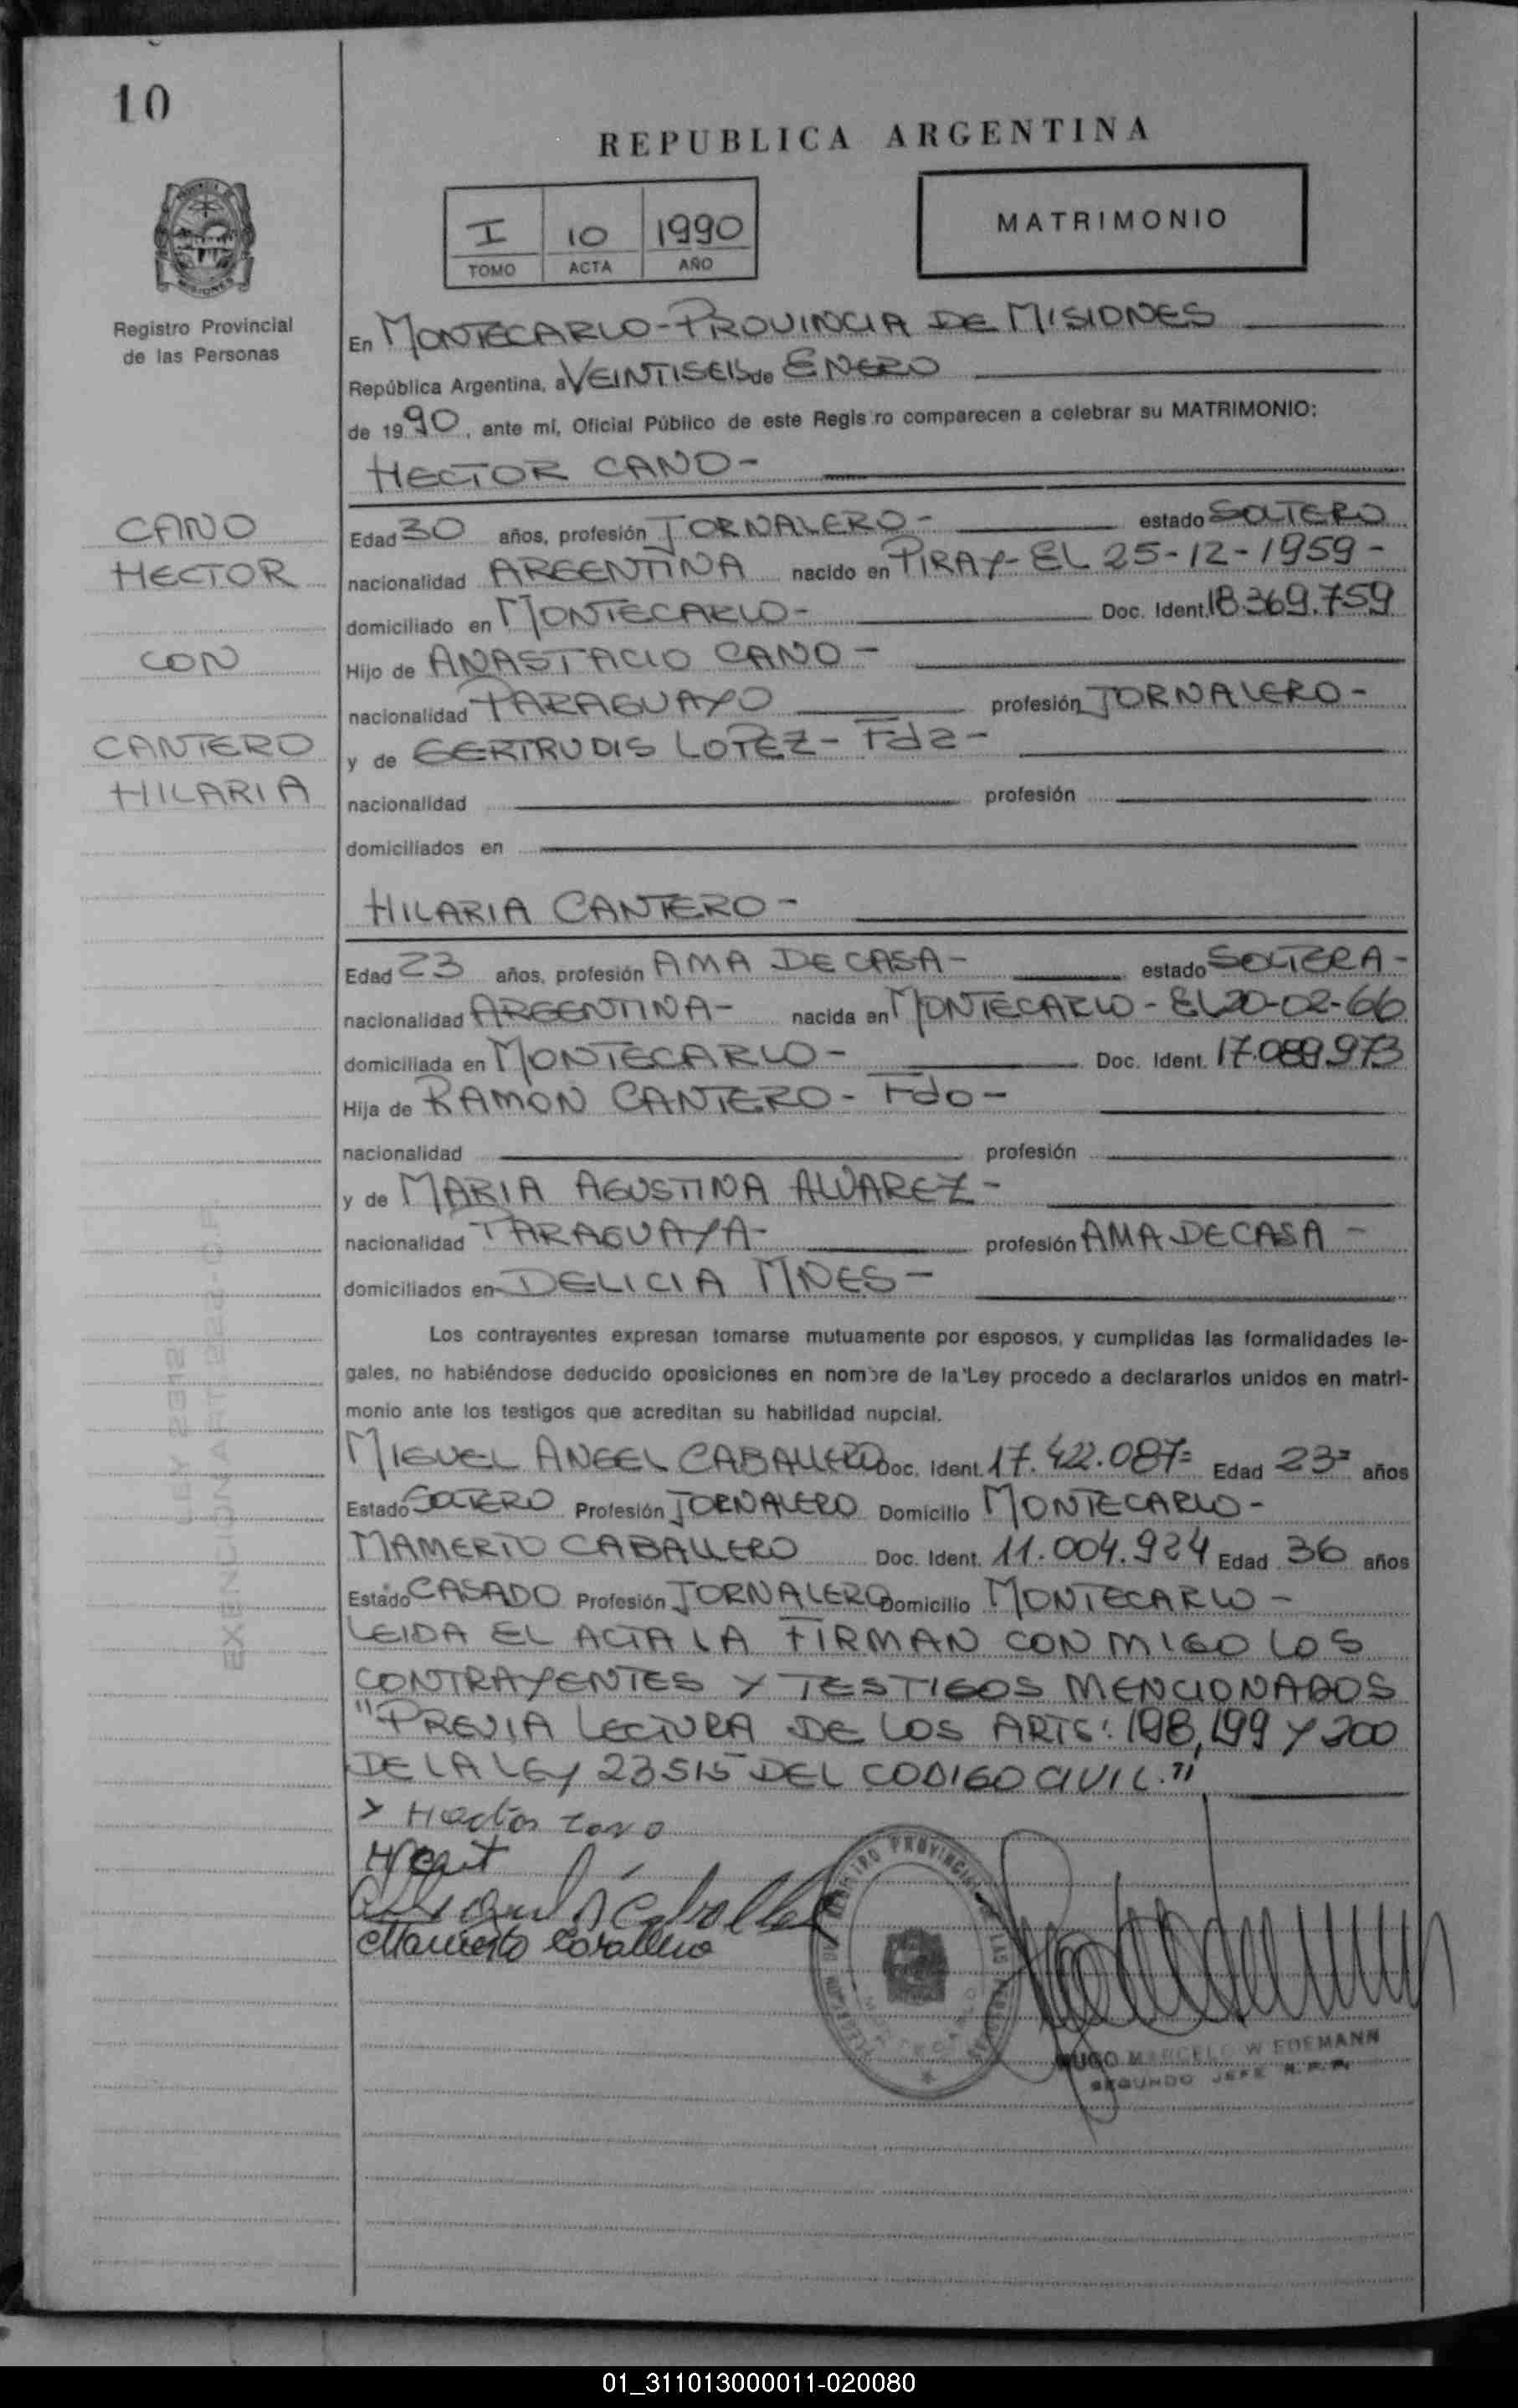 10
REPUBLICA ARGENTINA
I 10 1990
TOMO ACTA AÑO
MATRIMONIO
MISIONES
Registro Provincial
de las Personas
En MONTECARLO-PROVINCIA DE MISIONES
República Argentina, a VEINTISEIS de ENERO
de 1990, ante mí, Oficial Público de este Regis ro comparecen a celebrar su MATRIMONIO:
HECTOR CANO-
CANO
HECTOR
CON
CANTERO
HILARIA
Edad 30 años, profesión JORNALERO- estado SOLTERO
nacionalidad ARGENTINA nacido en PIRAY- EL 25-12-1959-
domiciliado en MONTECARLO- Doc. Ident. 18.369.759
Hijo de ANASTACIO CANO-
nacionalidad PARAGUAYO profesión JORNALERO-
y de GERTRUDIS LOPEZ- Fda-
nacionalidad profesión
domiciliados en
HILARIA CANTERO-
Edad 23 años, profesión AMA DE CASA- estado SOLTERA-
nacionalidad ARGENTINA- nacida en MONTECARLO- EL 20-02-66
domiciliada en MONTECARLO- Doc. Ident. 17.089.973
Hija de RAMON CANTERO- Fdo-
nacionalidad profesión
y de MARIA AGUSTINA ALVAREZ-
nacionalidad PARAGUAYA- profesión AMA DE CASA-
domiciliados en DELICIA MNES-
Los contrayentes expresan tomarse mutuamente por esposos, y cumplidas las formalidades le-
gales, no habiéndose deducido oposiciones en nombre de la Ley procedo a declararlos unidos en matri-
monio ante los testigos que acreditan su habilidad nupcial.
MIGUEL ANGEL CABALLERO Doc. Ident. 17.422.087= Edad 23= años
Estado SOLTERO Profesión JORNALERO Domicilio MONTECARLO-
MAMERTO CABALLERO Doc. Ident. 11.004.924 Edad 36 años
Estado CASADO Profesión JORNALERO Domicilio MONTECARLO-
LEIDA EL ACTA LA FIRMAN CON MIGO LOS
CONTRAYENTES Y TESTIGOS MENCIONADOS
"PREVIA LECTURA DE LOS ARTS: 198, 199 Y 200
DE LA LEY 23515 DEL CODIGO CIVIL."
Hector Cano
Mamerto Caballero
HUGO MARCELO W EDEMANN
SEGUNDO JEFE R.P.P.
01_311013000011-020080